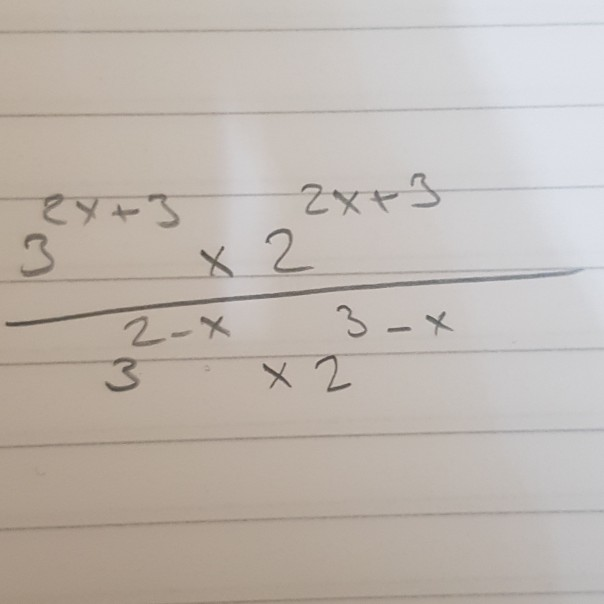 3^{2x+3} × 2^{2x+3}
3^{2-x} × 2^{3-x}